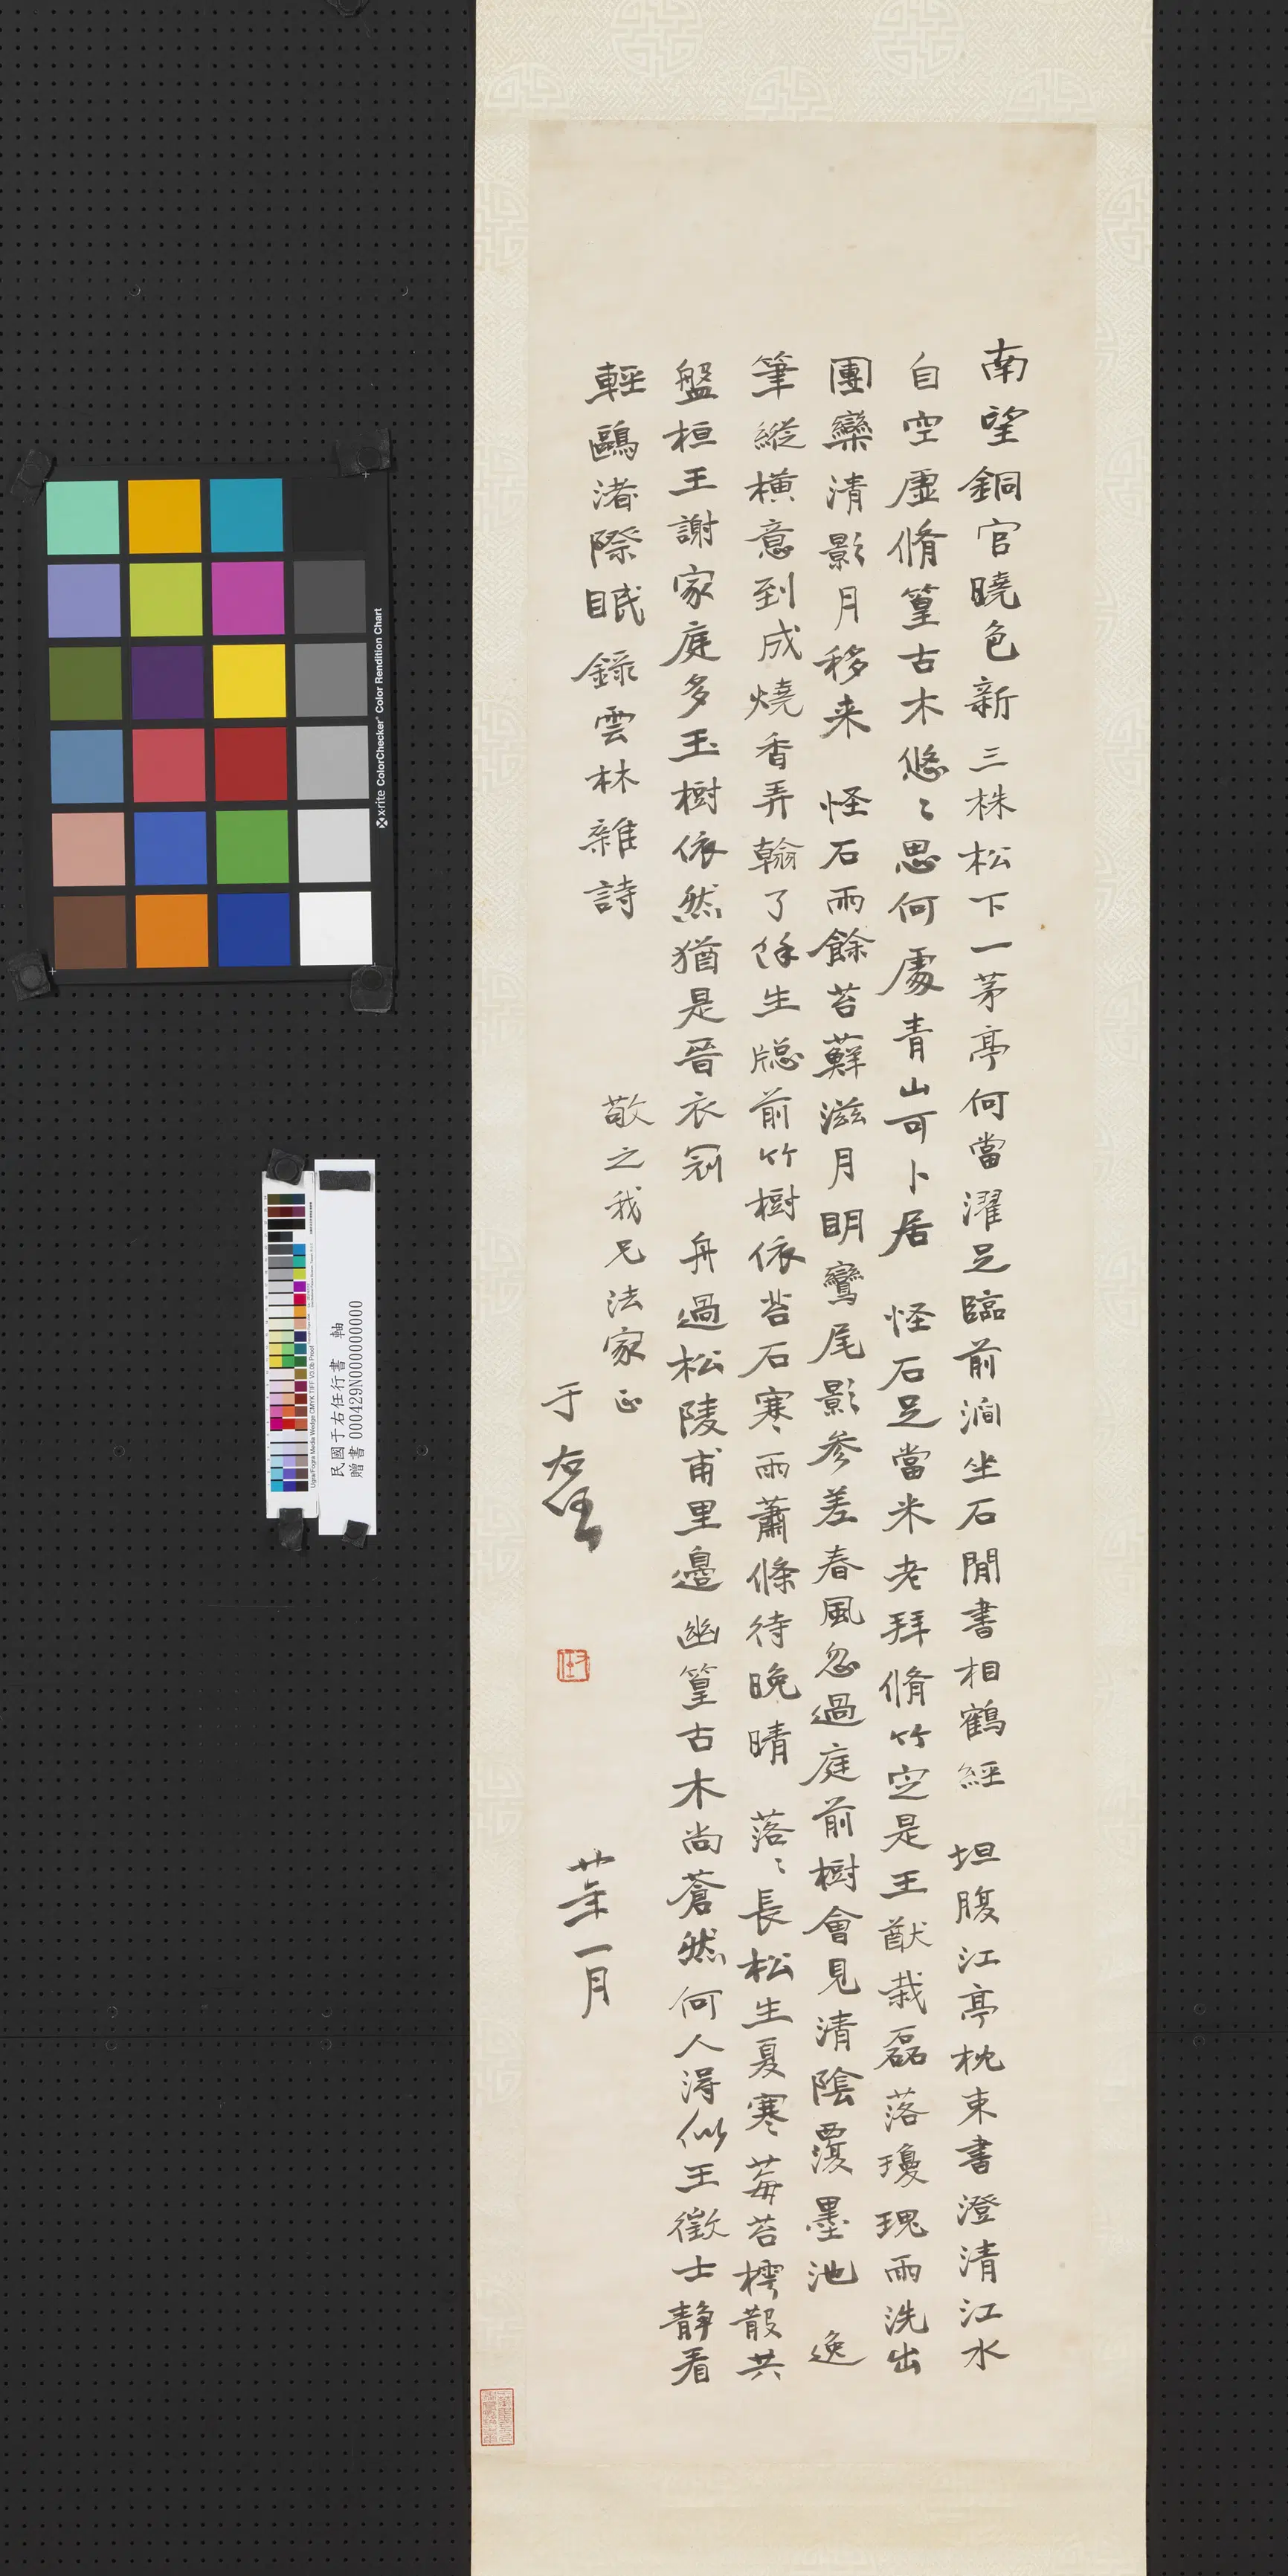 南望銅官曉色新三株松下一茅亭何當濯足臨前澗坐石閒書相鶴經　坦腹江亭枕束書澄清江水
自空虛脩篁古木悠〻思何處青山可卜居　怪石足當米老拜脩竹定是王猷栽磊落瓊瑰雨洗出
團欒清影月移来　怪石雨餘苔蘚滋月明鸞尾影參差春風忽過庭前樹會見清陰覆墨池　逸
筆縱橫意到成燒香弄翰了餘生牎前竹樹依苔石寒雨蕭條待晚晴　落〻長松生夏寒莓苔樗散共
盤桓王謝家庭多玉樹依然猶是晉衣冠　舟過松陵甫里邊幽篁古木尚蒼然何人得似王徵士靜看
輕鷗渚際眠　錄雲林雜詩
敬之我兄法家正
于右任
一月
民國于右任行書　軸
贈書 000429N000000000
x-rite ColorChecker® Color Rendition Chart